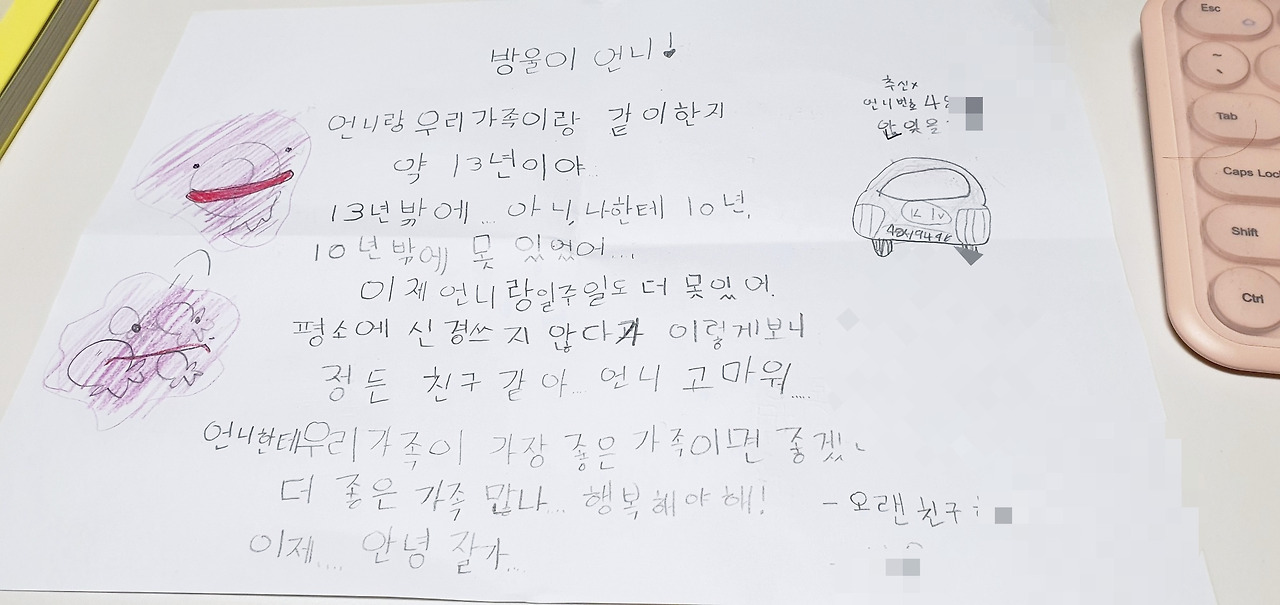 방울이 언니!
추신x
언니번호 4
안 잊을
언니랑 우리가족이랑 같이한지
약 13년이야..
13년밖에... 아닌, 나한테 10년,
10년밖에 못 있었어....
이제 언니랑일주일도 더 못있어.
평소에 신경쓰지 않다가 이렇게보니
정든 친구 같아.... 언니 고마워.....
언니한테우리가족이 가장 좋은 가족이면 좋겠
더 좋은 가족 만나... 행복해야해!
- 오랜친구
이제.... 안녕 잘가....
Esc
~
Tab
Caps Loc
Shift
Ctrl